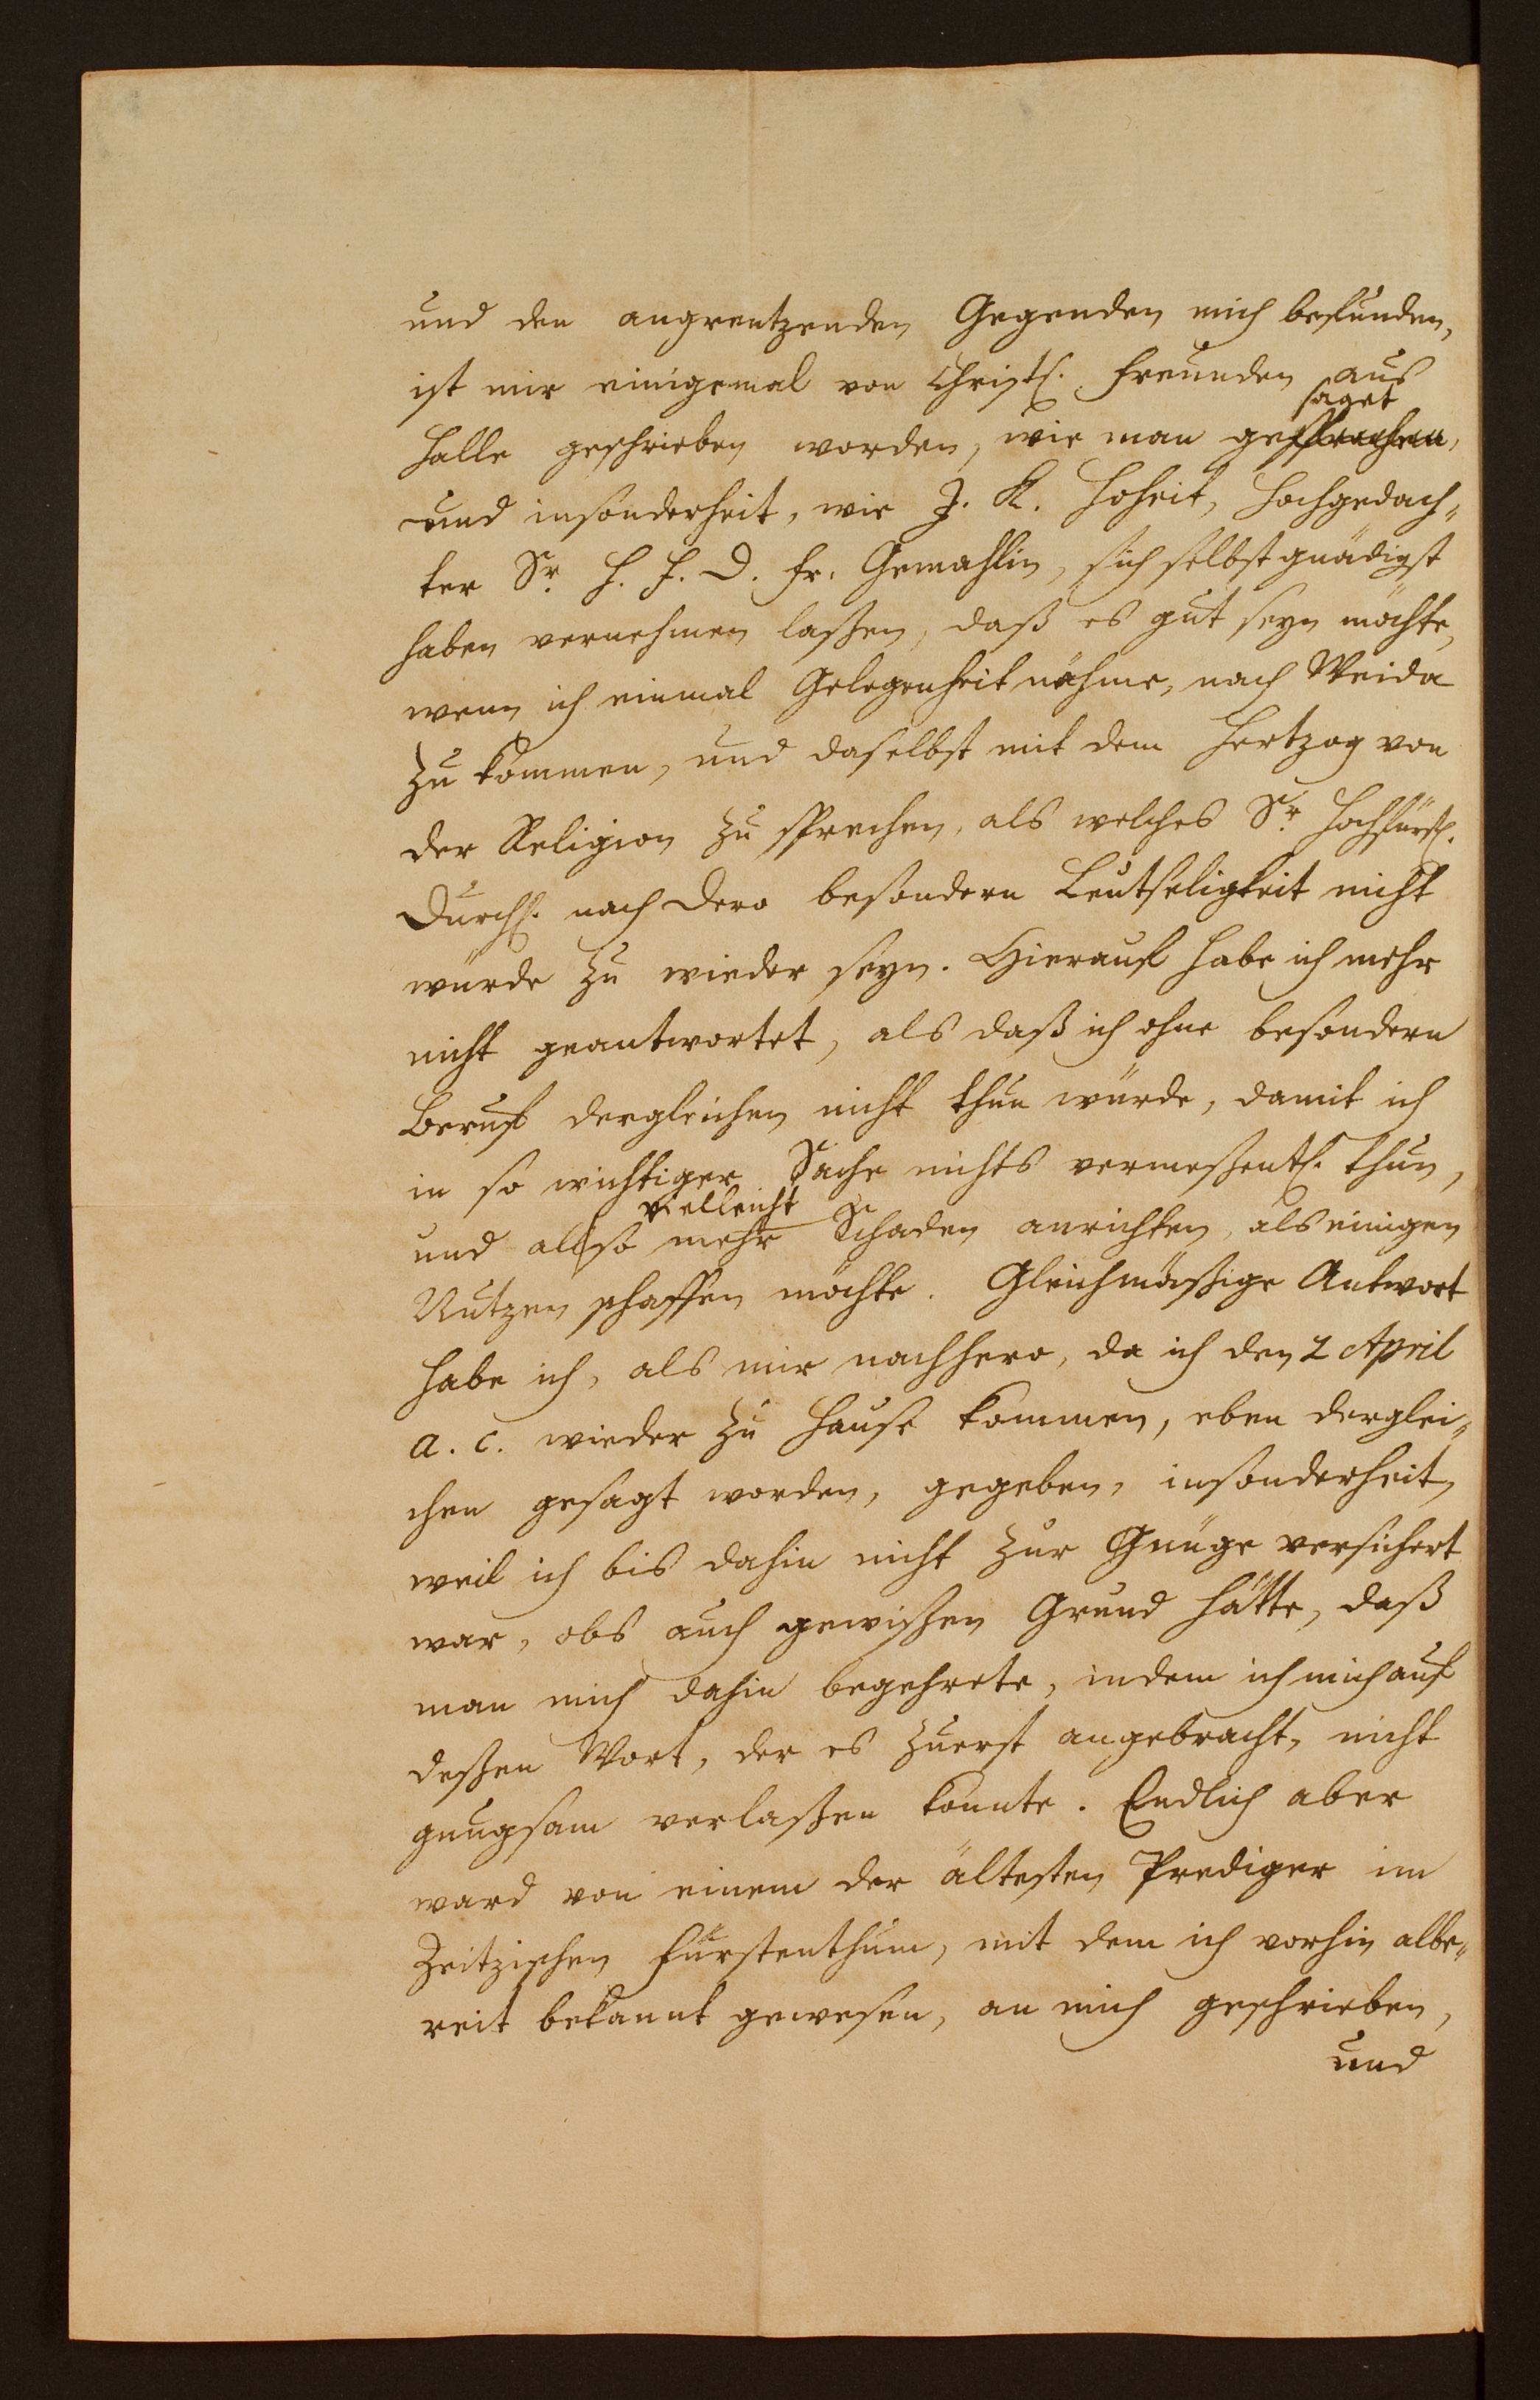 und den angrentzenden Gegenden mich befunden,
ist mir einigemal von Christl. Freunden aus
saget
Halle geschrieben worden, wie man gesprochen,
und insonderheit, wie J. K. Hoheit, Hochgedach-
ter Sr. H. F. D. Fr. Gemahlin, sich selbst gnädigst
haben vernehmen laßen, daß es gut seyn möchte,
wenn ich einmal Gelegenheit nähme, nach Weida
zu kommen, und daselbst mit dem Hertzog von
der Religion zu sprechen, als welches Sr. Hochfürstl.
Durchl. nach Dero besondern Leutseligkeit nicht
würde zu wieder seyn. Hierauf habe ich mehr
nicht geantwortet, als daß ich ohne besondern
Beruf dergleichen nicht thun würde, damit ich
in so wichtiger Sache nichts vermeßentl. thun,
vielleicht
und also mehr Schaden anrichten, als einigen
Nutzen schaffen möchte. Gleichmäßige Antwort
habe ich, als mir nachhero, da ich den 2 April
a. c. wieder zu Hause kommen, eben derglei-
chen gesagt worden, gegeben, insonderheit,
weil ich bis dahin nicht zur Gnüge versichert
war, obs auch gewißen Grund hätte, daß
man mich dahin begehrete, indem ich mich auf
deßen Wort, der es zuerst angebracht, nicht
gnugsam verlaßen konnte. Endlich aber
ward von einem der ältesten Prediger im
Zeitzischen Fürstenthum, mit dem ich vorhin albe-
reit bekannt gewesen, an mich geschrieben,
und